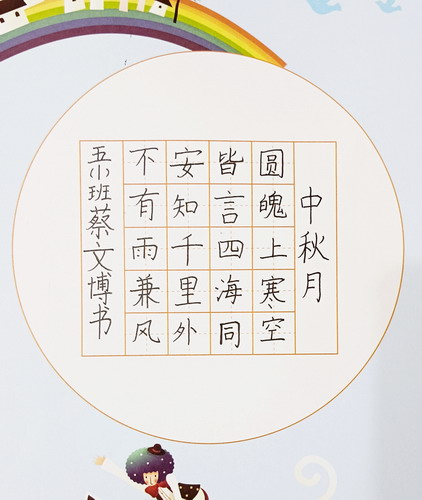 中秋月
圆魄上寒空
皆言四海同
安知千里外
不有雨兼风
五(小)班蔡文博书